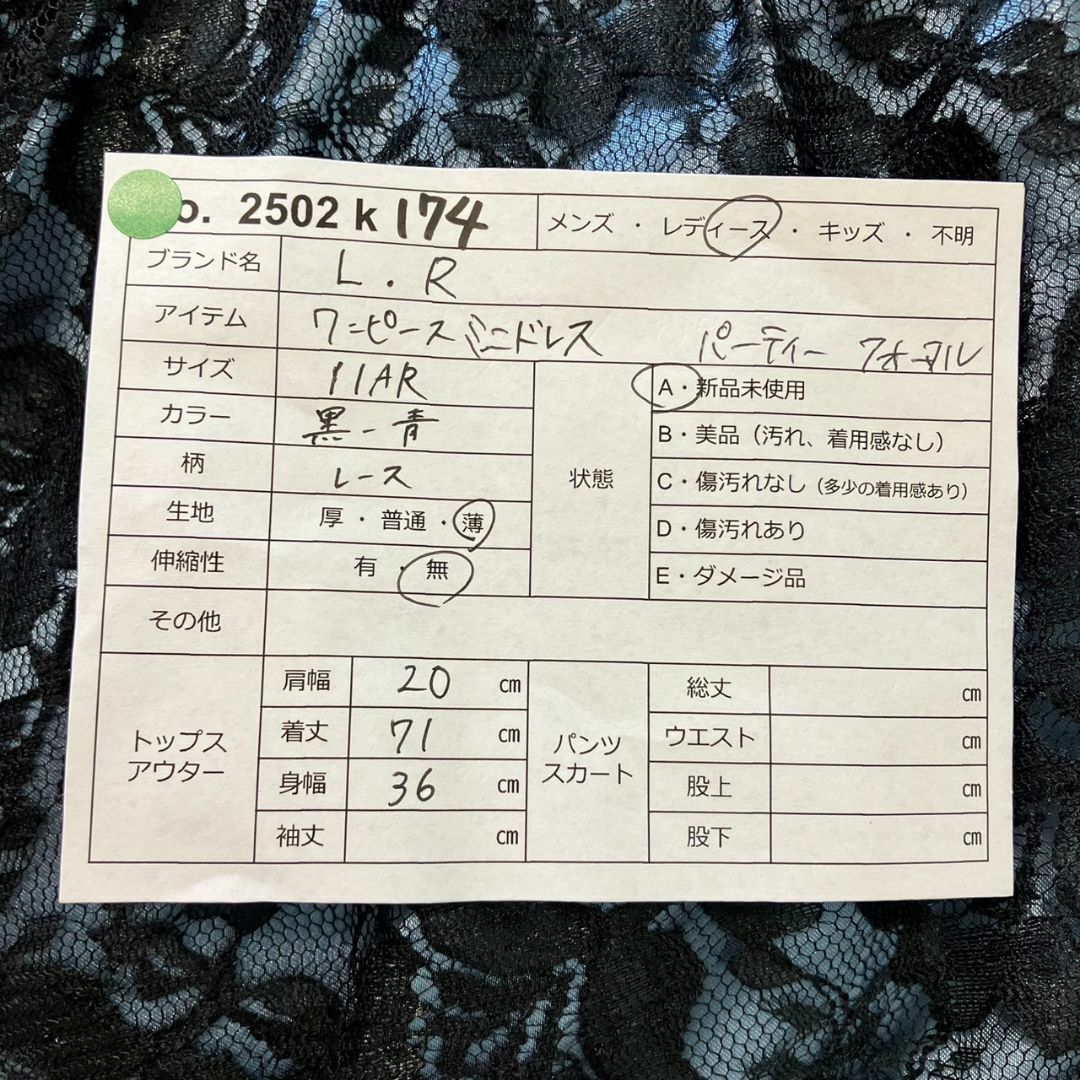 o. 2502 k 174 メンズ ・ レディース ・ キッズ ・ 不明
ブランド名 L.R
アイテム ワンピース ミニドレス パーティー フォーマル
サイズ 11AR
カラー 黒-青
柄 レース
生地 厚・普通・薄
伸縮性 有・無
状態
A・新品未使用
B・美品（汚れ、着用感なし）
C・傷汚れなし（多少の着用感あり）
D・傷汚れあり
E・ダメージ品
その他
トップス
アウター
肩幅 20 ㎝
着丈 71 ㎝
身幅 36 ㎝
袖丈 ㎝
パンツ
スカート
総丈 ㎝
ウエスト ㎝
股上 ㎝
股下 ㎝